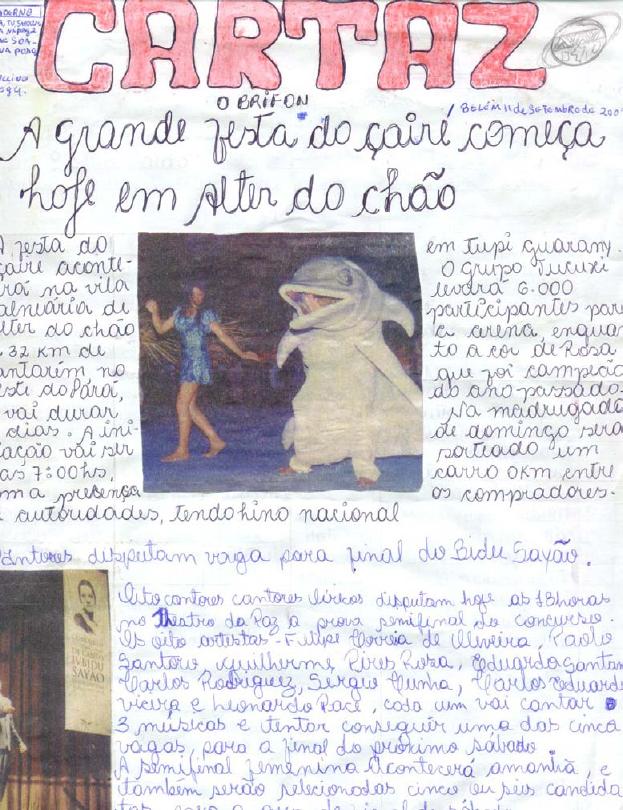 CARTAZ
O BRIFON
Belém 11 de setembro de
A grande festa do çairé começa
hoje em Alter do chão
A festa do
çairé aconte-
rá na vila
alneária de
lter do chão
32 km de
antarém no
este do Pará,
vai durar
dias. A ini-
iação vai ser
as 7:00hs,
om a presença
autoridades, tendo hino nacional
em tupi guarany.
O grupo Tucuxi
levará 6.000
participantes para
a arena, enquan
to a cor de Rosa
que foi campeão
do ano passado.
Na madrugada
de domingo será
sorteado um
carro 0KM entre
os compradores.
Cantores disputam vaga para final do Bidu Sayão.
BIDU
SAYÃO
Oito cantores cantores líricos disputam hoje as 18horas
no Theatro da Paz a prova semifinal do concurso.
Os oito artistas - Filipe Correia de Oliveira, Paolo
Santoro, Guilherme Pires Rosa, Eduardo Santan
Carlos Rodriguez, Sergio Cunha, Carlos Eduardo
vieira e Leonardo Pace, cada um vai cantar
3 músicas e tentar conseguir uma das cinco
vagas, para a final do próximo sábado.
A semifinal femenina acontecerá amanhã, e
também serão selecionadas cinco ou seis candida